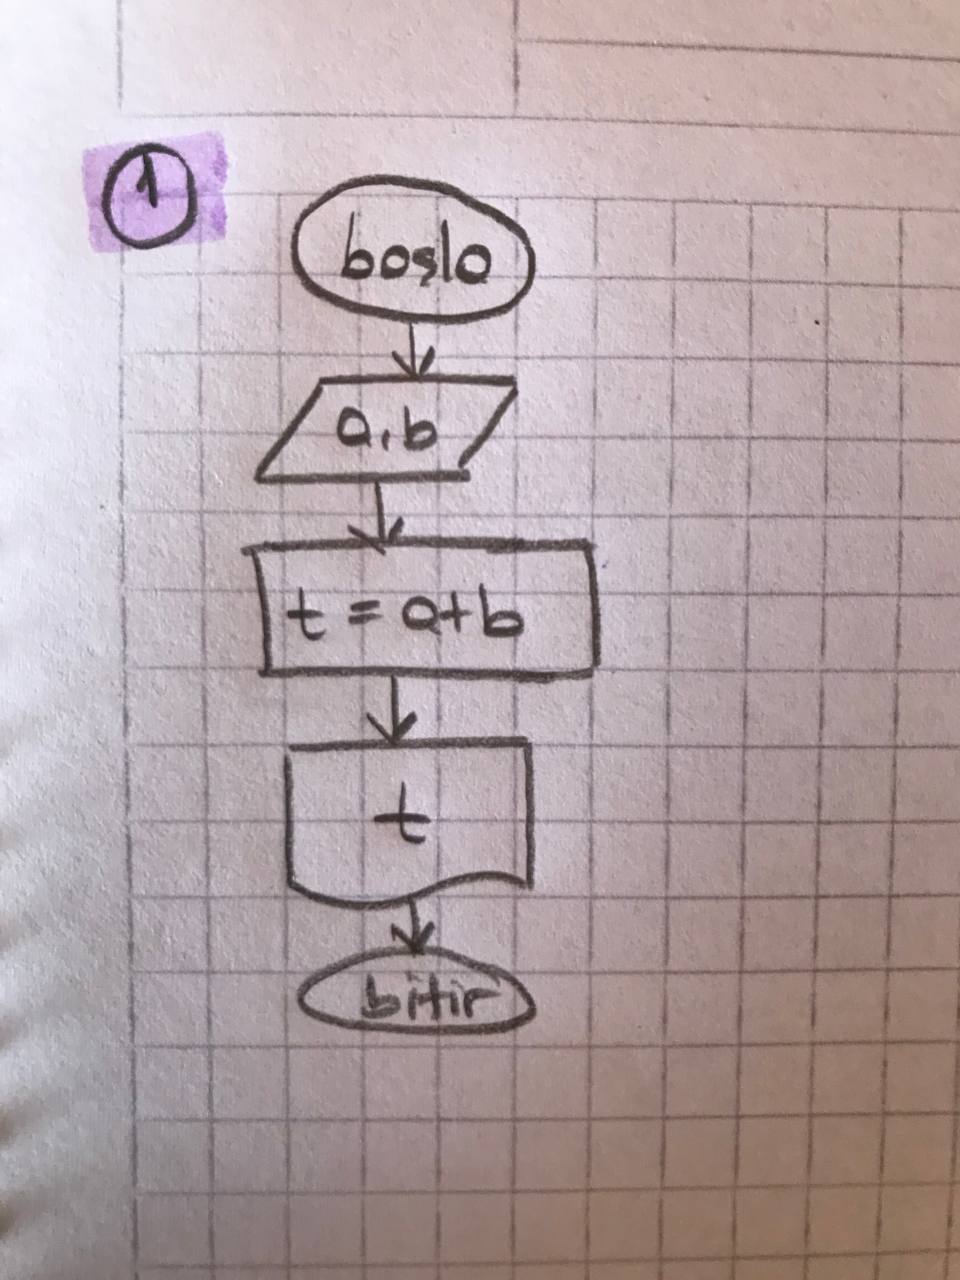 1
başla
a,b
t = a+b
t
bitir